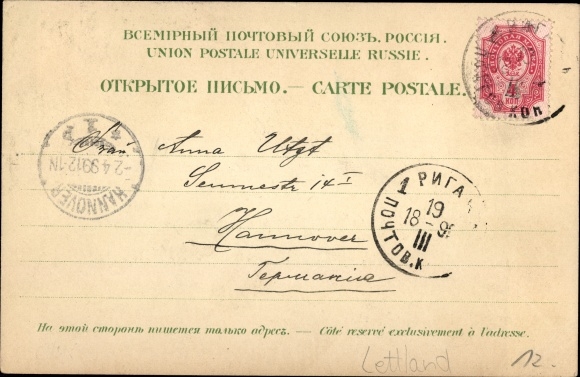 ВСЕМІРНЫЙ ПОЧТОВЫЙ СОЮЗЪ. РОССІЯ.
UNION POSTALE UNIVERSELLE RUSSIE.
ОТКРЫТОЕ ПИСЬМО. — CARTE POSTALE.
4
КОП
Anna
14 I
Hannover
Германія
HANNOVER
2.4.99.12-1N
РИГА
1
19
18-9
III
ПОЧТОВ.К
На этой сторонѣ пишется только адресъ. — Côté reservé exclusivement à l'adresse.
Lettland
12.-